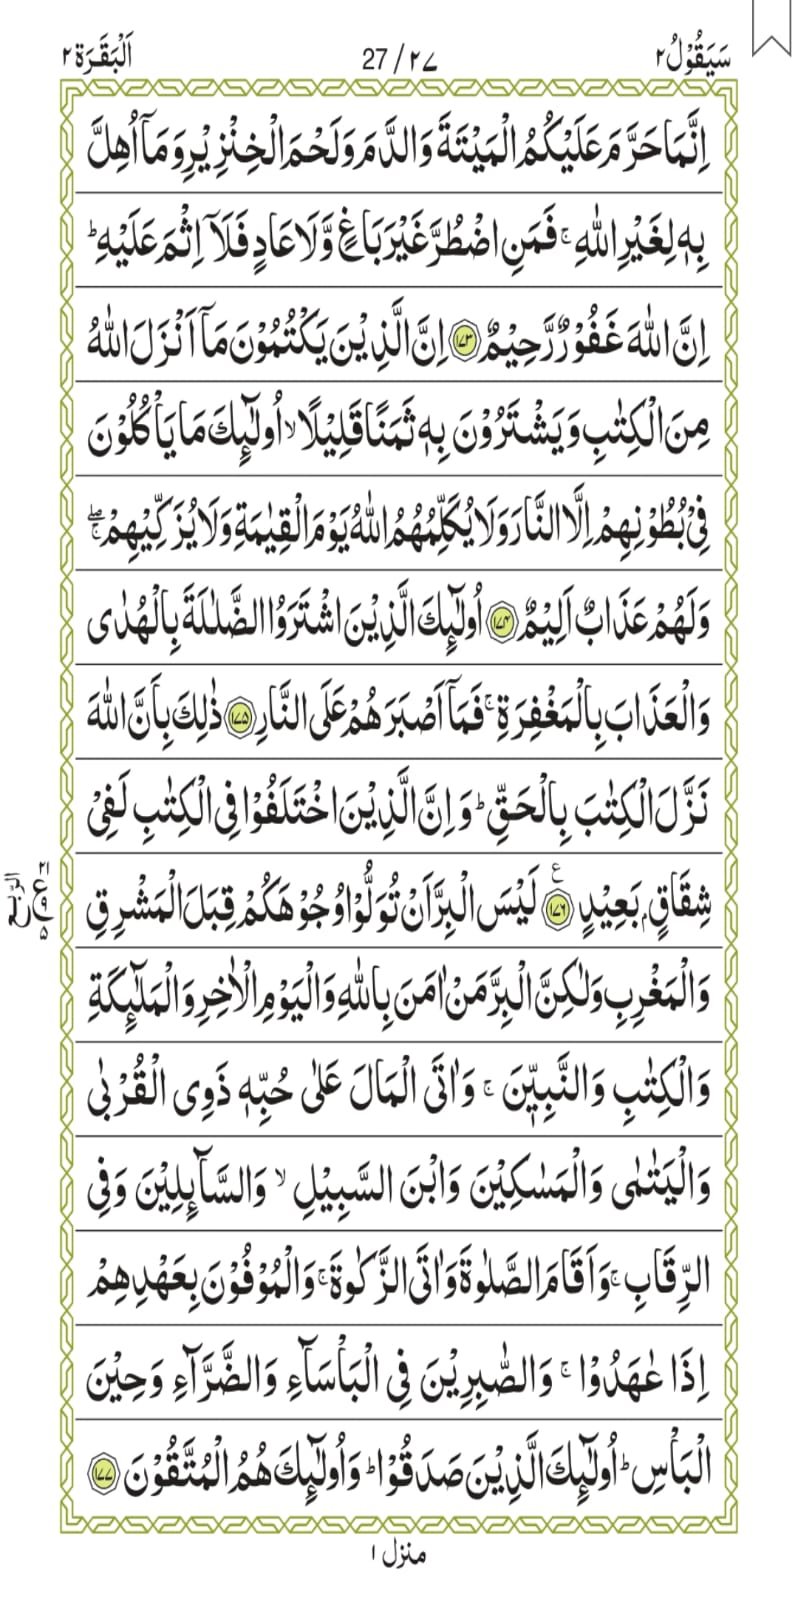 سَيَقُوْلُ ٢
27 / ٢٧
اَلْبَقَرَة ٢
اِنَّمَا حَرَّمَ عَلَيْكُمُ الْمَيْتَةَ وَالدَّمَ وَلَحْمَ الْخِنْزِيْرِ وَمَاۤ اُهِلَّ
بِهٖ لِغَيْرِ اللّٰهِ ۚ فَمَنِ اضْطُرَّ غَيْرَ بَاغٍ وَّلَا عَادٍ فَلَاۤ اِثْمَ عَلَيْهِ ؕ
اِنَّ اللّٰهَ غَفُوْرٌ رَّحِيْمٌ ١٧٣ اِنَّ الَّذِيْنَ يَكْتُمُوْنَ مَاۤ اَنْزَلَ اللّٰهُ
مِنَ الْكِتٰبِ وَيَشْتَرُوْنَ بِهٖ ثَمَنًا قَلِيْلًا ۙ اُولٰٓئِكَ مَا يَاْكُلُوْنَ
فِيْ بُطُوْنِهِمْ اِلَّا النَّارَ وَلَا يُكَلِّمُهُمُ اللّٰهُ يَوْمَ الْقِيٰمَةِ وَلَا يُزَكِّيْهِمْ ۖۚ
وَلَهُمْ عَذَابٌ اَلِيْمٌ ١٧٤ اُولٰٓئِكَ الَّذِيْنَ اشْتَرَوُا الضَّلٰلَةَ بِالْهُدٰى
وَالْعَذَابَ بِالْمَغْفِرَةِ ۚ فَمَاۤ اَصْبَرَهُمْ عَلَى النَّارِ ١٧٥ ذٰلِكَ بِاَنَّ اللّٰهَ
نَزَّلَ الْكِتٰبَ بِالْحَقِّ ؕ وَاِنَّ الَّذِيْنَ اخْتَلَفُوْا فِى الْكِتٰبِ لَفِيْ
شِقَاقٍۭ بَعِيْدٍ ١٧٦ ع لَيْسَ الْبِرَّ اَنْ تُوَلُّوْا وُجُوْهَكُمْ قِبَلَ الْمَشْرِقِ
٢١ ع ٩ ٥ الربع
وَالْمَغْرِبِ وَلٰكِنَّ الْبِرَّ مَنْ اٰمَنَ بِاللّٰهِ وَالْيَوْمِ الْاٰخِرِ وَالْمَلٰٓئِكَةِ
وَالْكِتٰبِ وَالنَّبِيّٖنَ ۚ وَاٰتَى الْمَالَ عَلٰى حُبِّهٖ ذَوِى الْقُرْبٰى
وَالْيَتٰمٰى وَالْمَسٰكِيْنَ وَابْنَ السَّبِيْلِ ۙ وَالسَّآئِلِيْنَ وَفِى
الرِّقَابِ ۚ وَاَقَامَ الصَّلٰوةَ وَاٰتَى الزَّكٰوةَ ۚ وَالْمُوْفُوْنَ بِعَهْدِهِمْ
اِذَا عٰهَدُوْا ۚ وَالصّٰبِرِيْنَ فِى الْبَاْسَآءِ وَالضَّرَّآءِ وَحِيْنَ
الْبَاْسِ ؕ اُولٰٓئِكَ الَّذِيْنَ صَدَقُوْا ؕ وَاُولٰٓئِكَ هُمُ الْمُتَّقُوْنَ ١٧٧
منزل ١